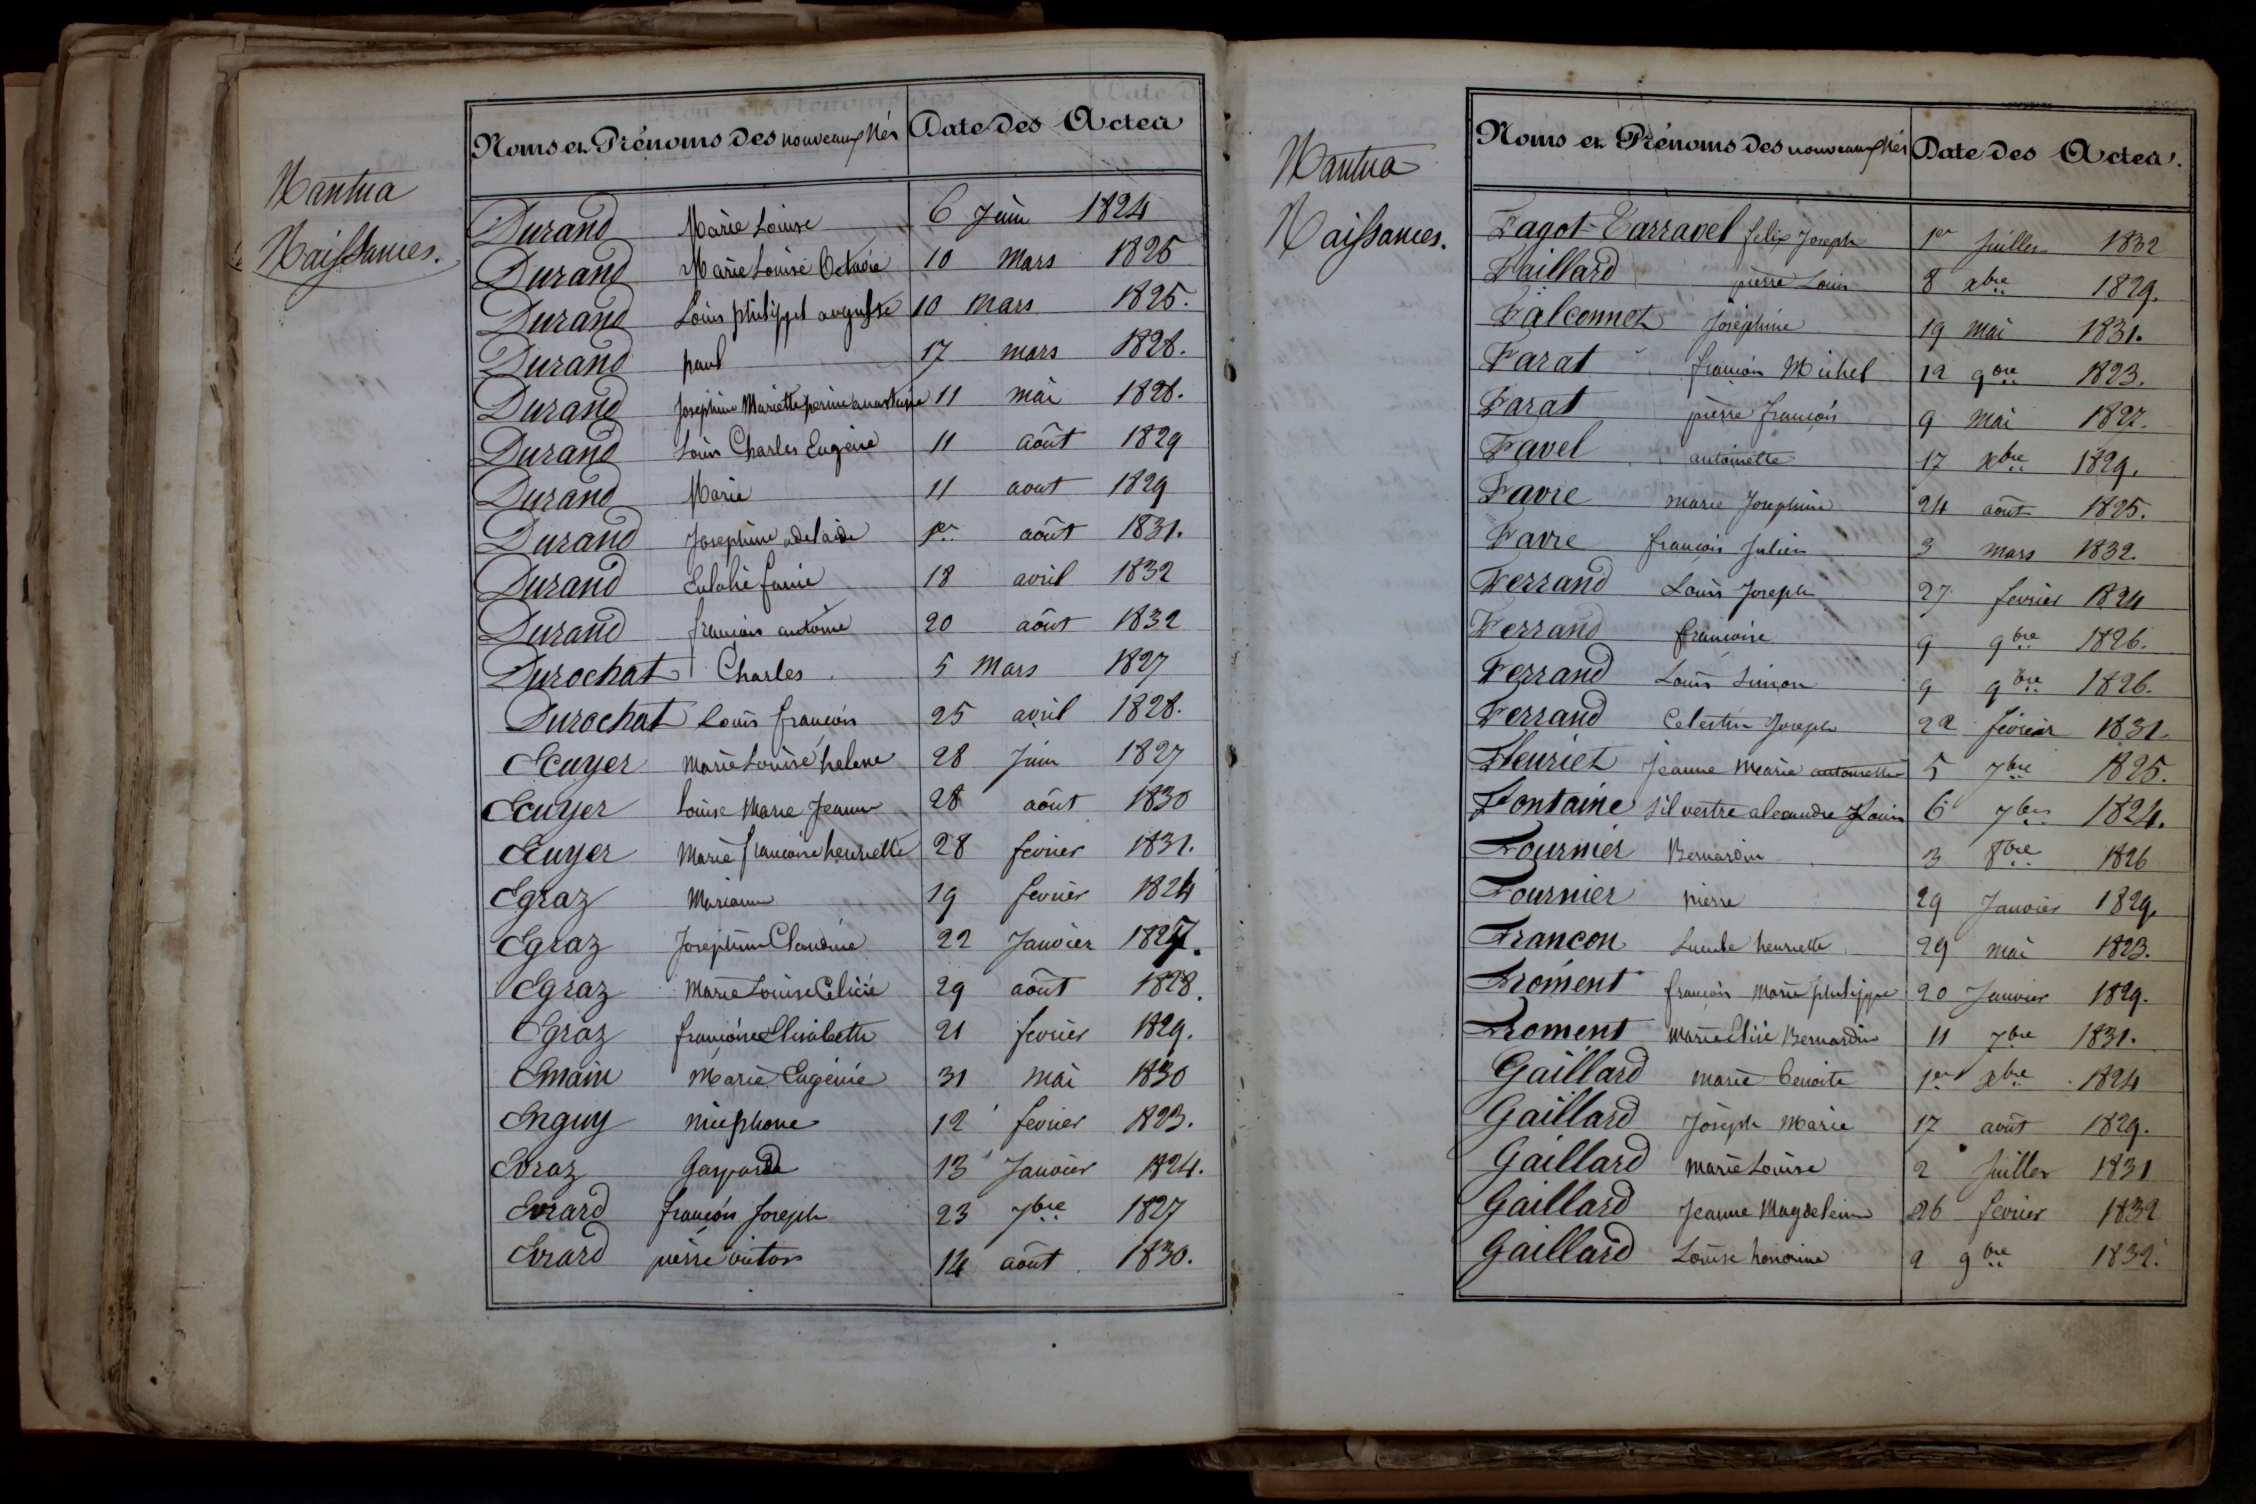 Nantua
Naissances.
Noms et Prénoms des nouveaux Nés Date des Actes
Durand Marie Louise 6 Juin 1824
Durand Marie Louise Octavie 10 mars 1825
Durand Louis philippe auguste 10 mars 1825.
Durand paul 17 mars 1828.
Durand Josephine Mariette perine anastasie 11 mai 1828.
Durand Louis Charles Eugène 11 août 1829
Durand Marie 11 aout 1829
Durand Josephine adelaide 1er août 1831.
Durand Eulalie fanie 18 avril 1832
Durand françois antoine 20 août 1832
Durochat Charles 5 Mars 1827
Durochat Louis françois 25 avril 1828.
Ecuyer Marie Louise helene 28 Juin 1827
Ecuyer Louise Marie Jeanne 28 août 1830
Ecuyer Marie françoise henriette 28 fevrier 1831.
Egraz Marianne 19 fevrier 1824
Egraz Josephine Claudine 22 Janvier 1827.
Egraz Marie Louise Célicie 29 août 1828.
Egraz françoise Elisabette 21 fevrier 1829.
Emain Marie Eugénie 31 mai 1830
Enguy nicephore 12 fevrier 1823.
Evraz Gasparde 13 Janvier 1824.
Evrard françois Joseph 23 7bre 1827
Evrard pierre victor 14 août 1830.
Nantua
Naissances.
Noms et Prénoms des nouveaux Nés Date des Actes.
Fagot-Tarravel felix Joseph 1er Juillet 1832
Faillard pierre Louis 8 xbre 1829.
Falconnet Joséphine 19 mai 1831.
Farat françois Michel 12 9bre 1823.
Farat pierre françois 9 mai 1827.
Favel antoinette 17 xbre 1829.
Favre marie Josephine 24 août 1825.
Favre françois Julien 3 mars 1832.
Ferrand Louis Joseph 27 fevrier 1824
Ferrand françoise 9 9bre 1826.
Ferrand Louis Simon 9 9bre 1826.
Ferrand Celestin Joseph 22 février 1831.
Fleuriet jeanne Marie antoinette 5 7bre 1825.
Fontaine Silvestre alexandre Louis 6 7bre 1824.
Fournier Bernardin 3 8bre 1826
Fournier pierre 29 Janvier 1829.
Francon henriette 29 mai 1823.
Froment françois Marie philippe 20 Janvier 1829.
Froment Marie Elise Bernardin 11 7bre 1831.
Gaillard marie benoite 1er xbre 1824
Gaillard Joseph Marie 17 août 1829.
Gaillard Marie Louise 2 Juillet 1831
Gaillard Jeanne Magdeleine 26 fevrier 1832
Gaillard Louise honorine 2 9bre 1832.